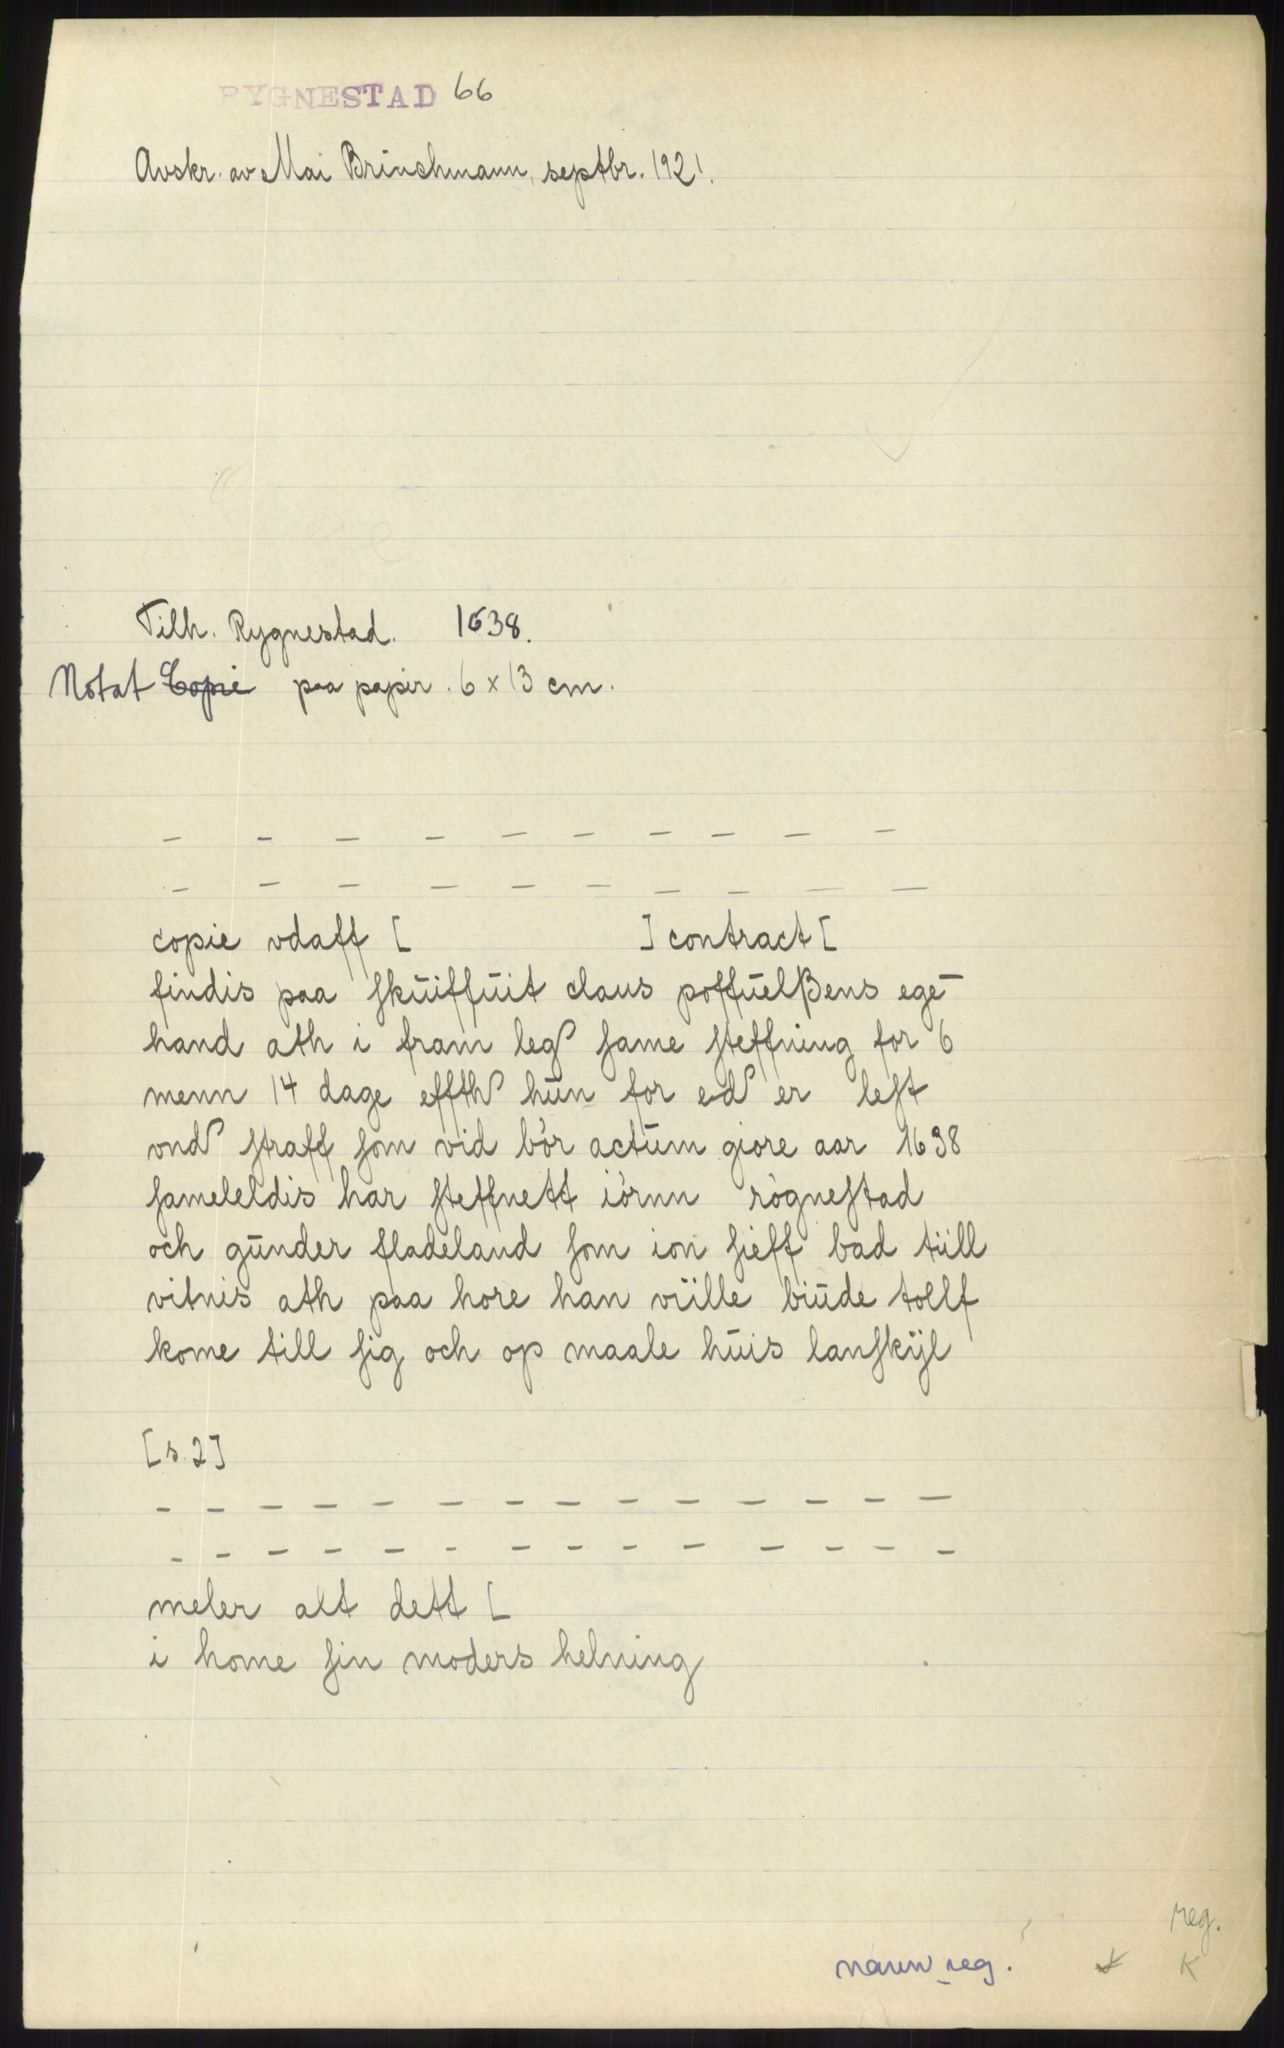 RYGNESTAD 66
Avskr. av Mai Brinchmann, septbr. 1921.
Tilh. Rygnestad. 1638.
Notat Copie paa papir. 6 x 13 cm.
— — — — — — — — — —
— — — — — — — — — —
copie vdaff [ ] contract [
findis paa ſkūiffūit claus poffūelßens egē
hand ath i fram leg ſame ſteffning for 6
menn 14 dage effth hūn for ed er leſt
vnd ſtraff ſom vid bör actūm giore aar 1638
ſameleldis har ſteffnett iörnn rögneſtad
och gūnder fladeland ſom ion ſieff bad tiill
vitnis ath paa hore han viille biūde tollf
kome till ſig och op maale hūis lanſkÿl
[s. 2]
— — — — — — — — — — — — — —
— — — — — — — — — — — — — —
meler alt dett [
i home ſin moders helning
reg.
navn reg. K